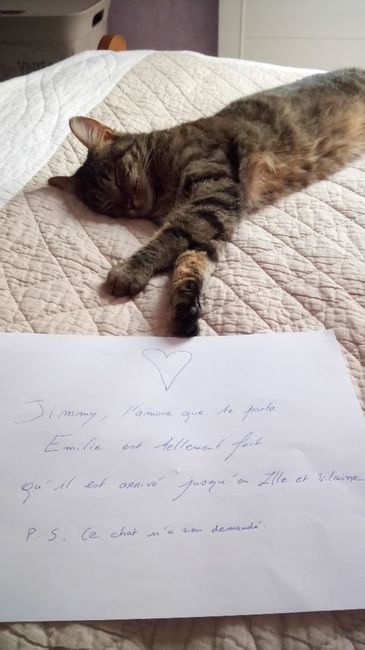 Jimmy, l'amour que te porte
Emilie est tellement fort
qu'il est ARRIVÉ jusqu'en Ille et Vilaine
P.S: Le chat n'a rien demandé.